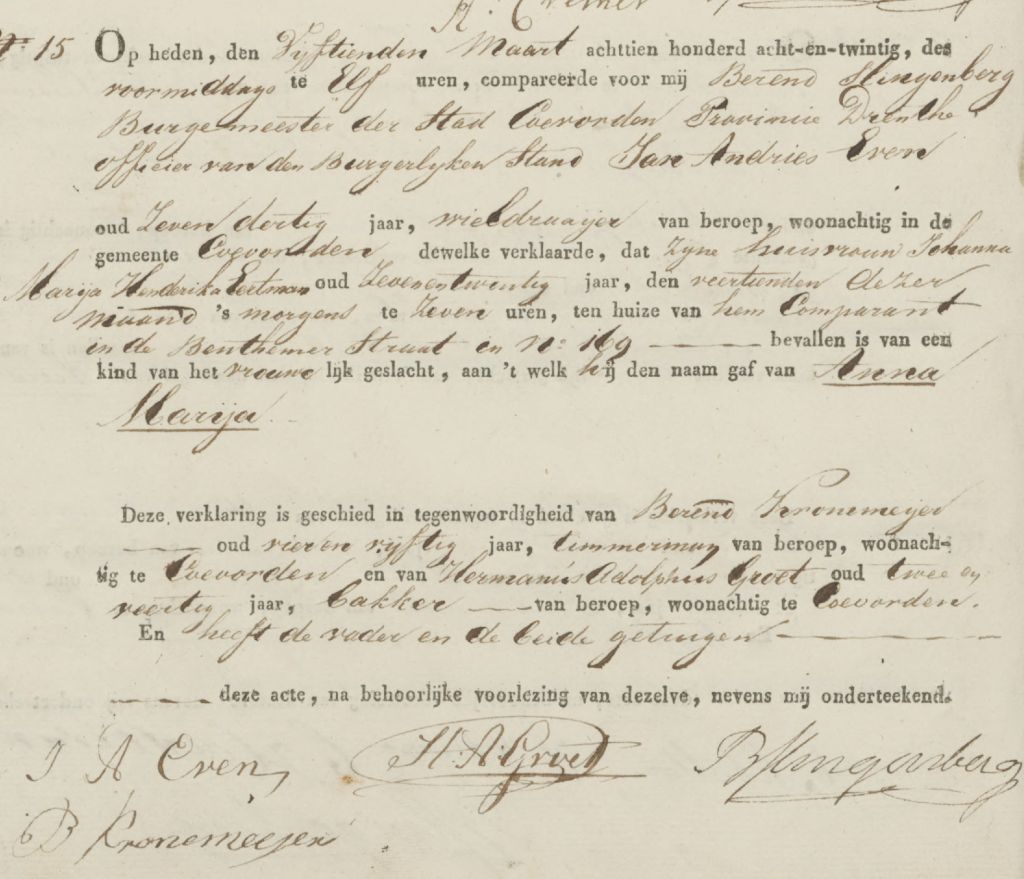 N° 15 Op heden, den Vyftienden Maart achttien honderd acht-en-twintig, des
voormiddags te Elf uren, compareerde voor mij Berend Slingenberg
Burgemeester der Stad Coevorden Provincie Drenthe
officier van den Burgerlyken Stand Jan Andries Even
oud Zeven dertig jaar, wieldraayer van beroep, woonachtig in de
gemeente Coevorden dewelke verklaarde, dat zyne huisvrouw Johanna
Marija Henderika Eertman oud Zevenentwintig jaar, den veertienden dezer
maand 's morgens te Zeven uren, ten huize van hem Comparant
in de Benthemer Straat en N° 169 bevallen is van een
kind van het vrouwelijk geslacht, aan 't welk hij den naam gaf van Anna
Marija
Deze verklaring is geschied in tegenwoordigheid van Berend Kronemeyer
oud vier en vijftig jaar, timmerman van beroep, woonach-
tig te Coevorden en van Hermannus Adolphus Groet oud twee en
veertig jaar, bakker van beroep, woonachtig te Coevorden.
En heeft de vader en de beide getuigen
deze acte, na behoorlijke voorlezing van dezelve, nevens mij onderteekend.
J A Even H. A. Groet B Slingenberg
B Kronemeejer